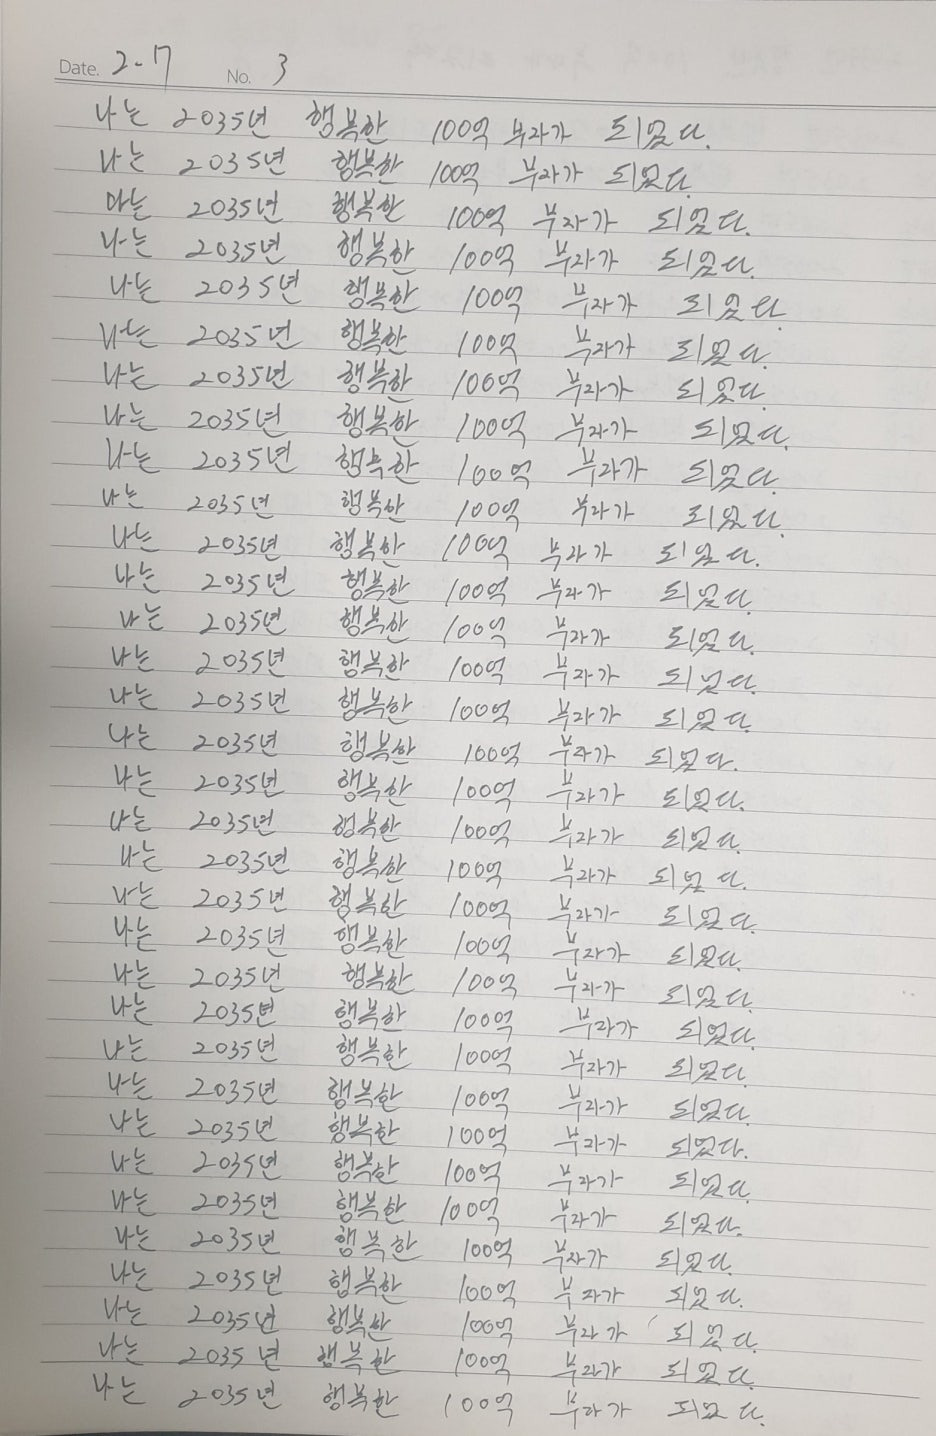 Date. 2-17 No. 3
나는 2035년 행복한 100억 부자가 되었다.
나는 2035년 행복한 100억 부자가 되었다.
나는 2035년 행복한 100억 부자가 되었다.
나는 2035년 행복한 100억 부자가 되었다.
나는 2035년 행복한 100억 부자가 되었다.
나는 2035년 행복한 100억 부자가 되었다.
나는 2035년 행복한 100억 부자가 되었다.
나는 2035년 행복한 100억 부자가 되었다.
나는 2035년 행복한 100억 부자가 되었다.
나는 2035년 행복한 100억 부자가 되었다.
나는 2035년 행복한 100억 부자가 되었다.
나는 2035년 행복한 100억 부자가 되었다.
나는 2035년 행복한 100억 부자가 되었다.
나는 2035년 행복한 100억 부자가 되었다.
나는 2035년 행복한 100억 부자가 되었다.
나는 2035년 행복한 100억 부자가 되었다.
나는 2035년 행복한 100억 부자가 되었다.
나는 2035년 행복한 100억 부자가 되었다.
나는 2035년 행복한 100억 부자가 되었다.
나는 2035년 행복한 100억 부자가 되었다.
나는 2035년 행복한 100억 부자가 되었다.
나는 2035년 행복한 100억 부자가 되었다.
나는 2035년 행복한 100억 부자가 되었다.
나는 2035년 행복한 100억 부자가 되었다.
나는 2035년 행복한 100억 부자가 되었다.
나는 2035년 행복한 100억 부자가 되었다.
나는 2035년 행복한 100억 부자가 되었다.
나는 2035년 행복한 100억 부자가 되었다.
나는 2035년 행복한 100억 부자가 되었다.
나는 2035년 행복한 100억 부자가 되었다.
나는 2035년 행복한 100억 부자가 되었다.
나는 2035년 행복한 100억 부자가 되었다.
나는 2035년 행복한 100억 부자가 되었다.